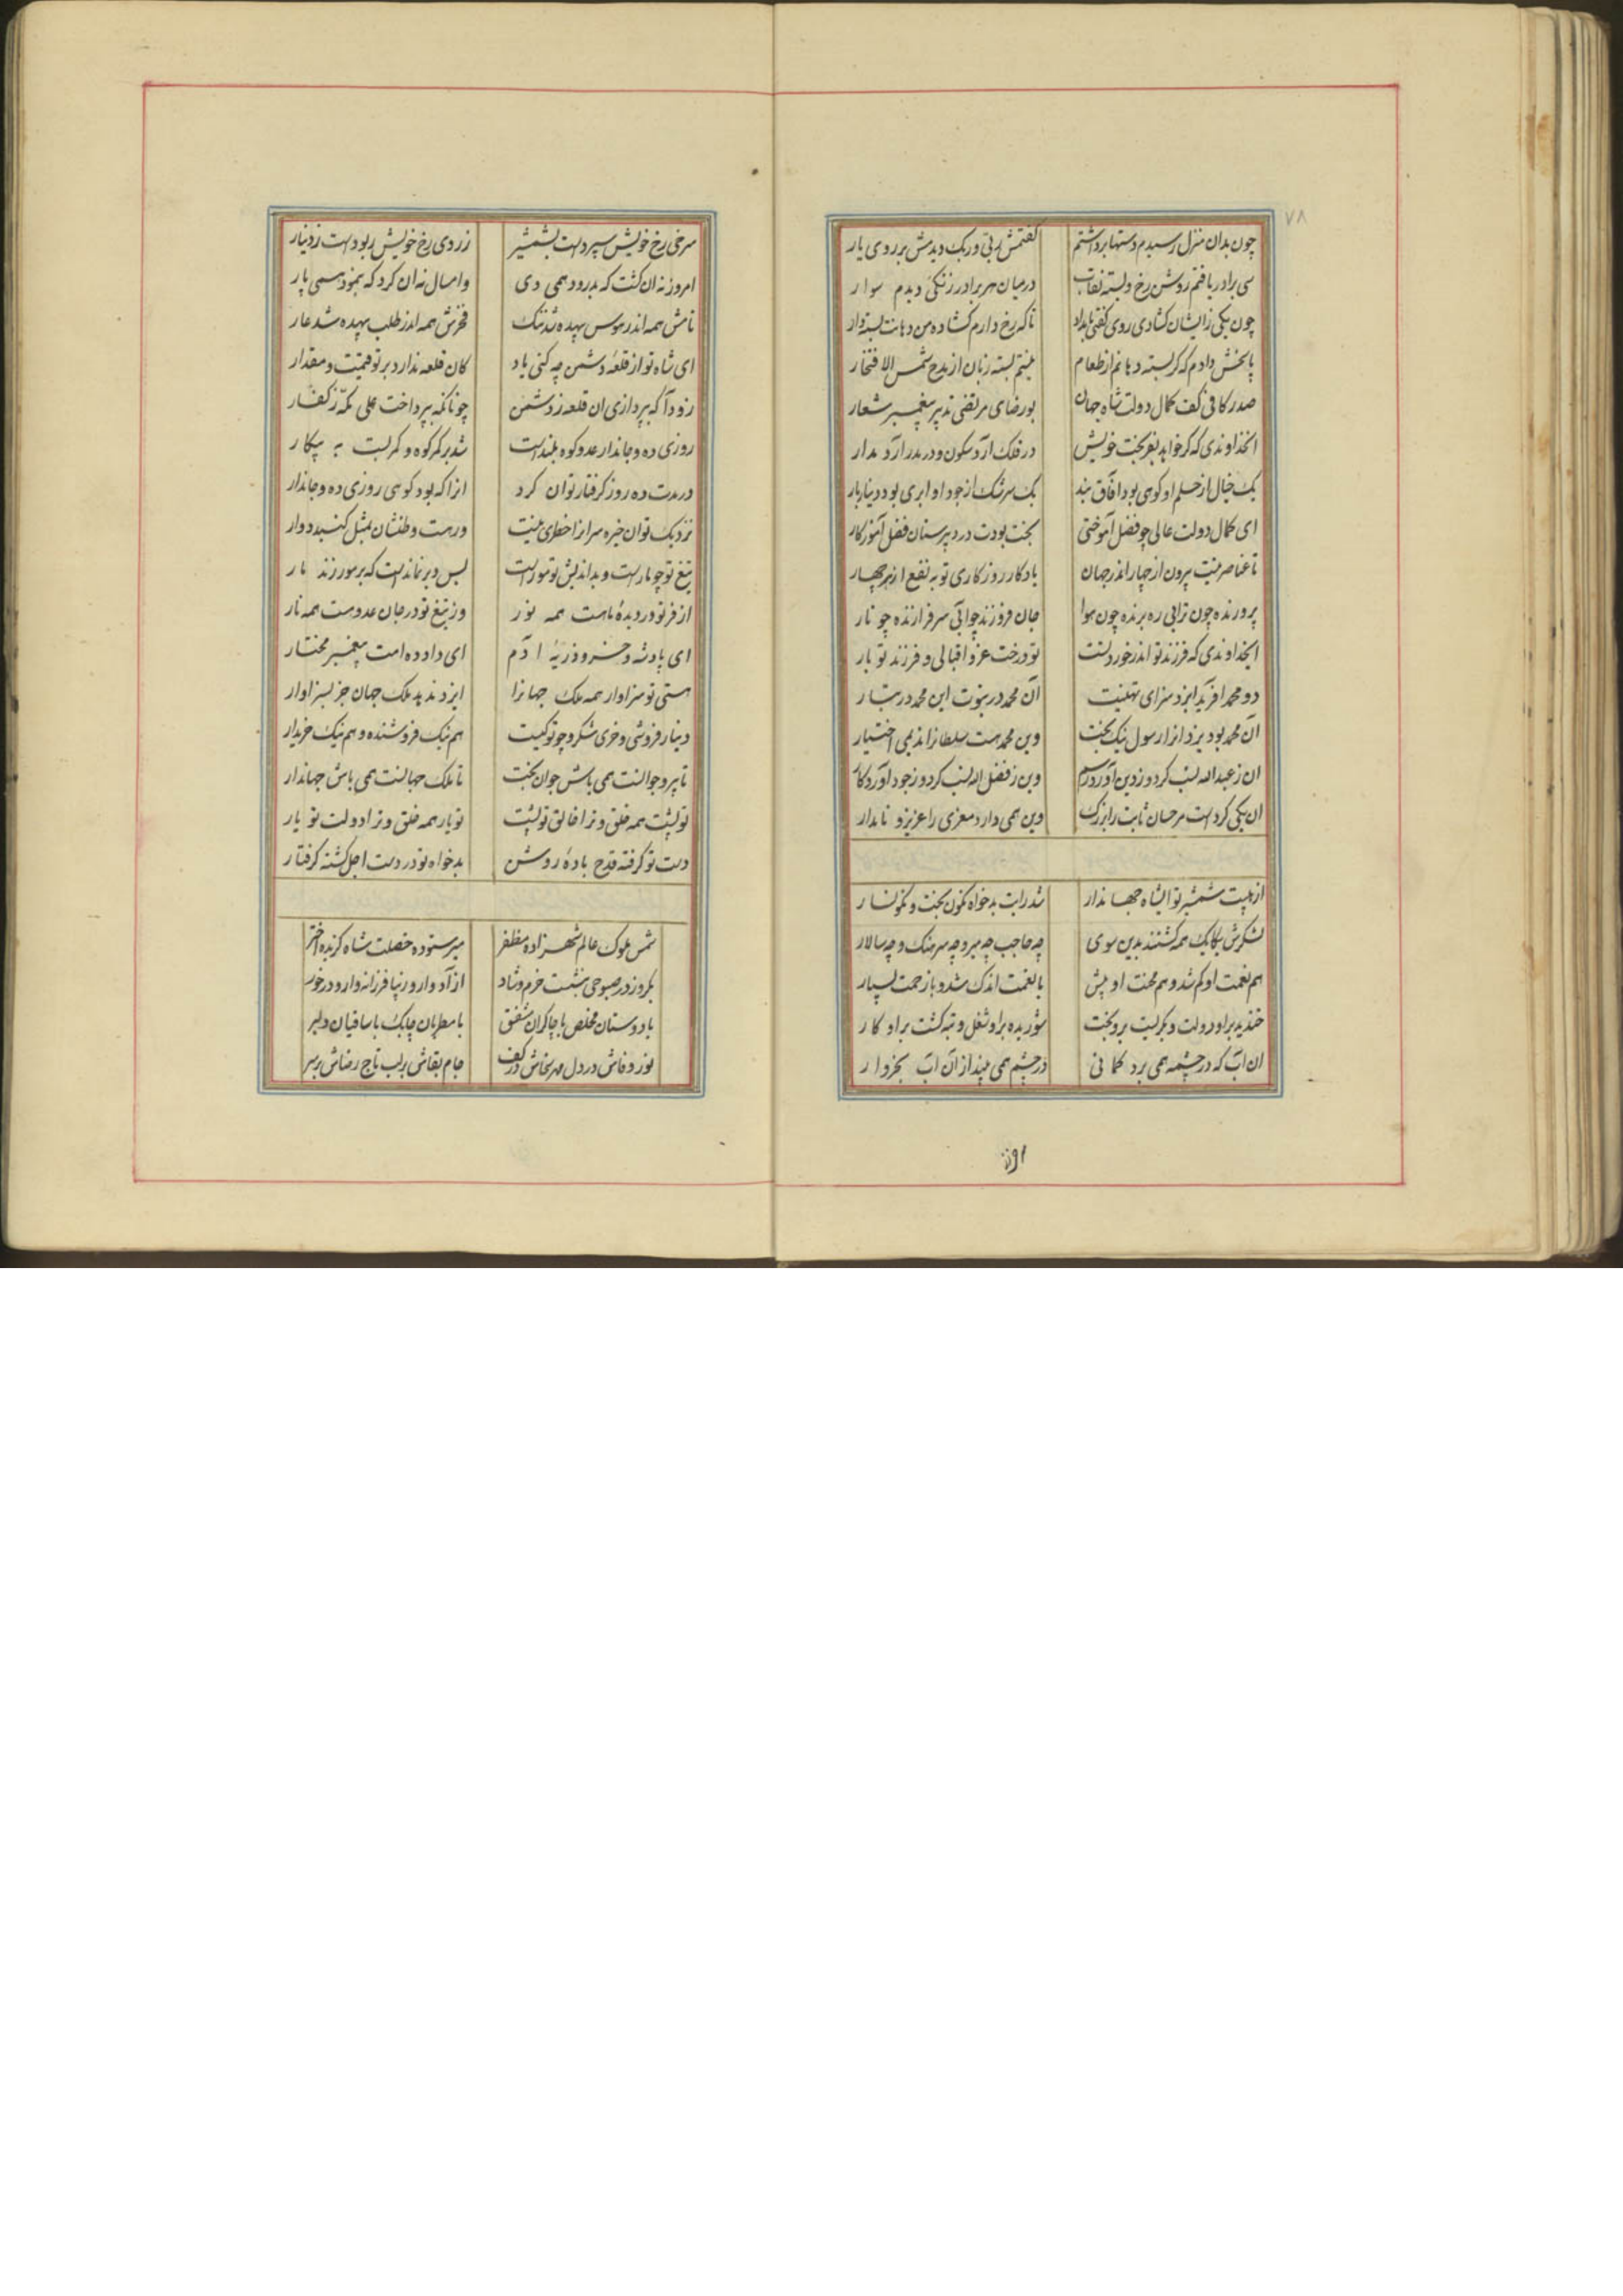 ۷۸
چون بدان منزل رسیدم دستها برداشتم گفتمش ربی و ربک دیدمش بر روی یار
سی برادر یافتم روشن رخ و بسته نقاب در میان هر برادر زنگی دیدم سوار
چون یکی زایشان گشادی روی گفتی بامداد تا که رخ دارم گشاده من دهانت بسته دار
پاسخش دادم که گر بسته دهانم از طعام نیستم بسته زبان از مدح شمس الافتخار
صدر کافی کف کمال دولت شاه جهان بو رضای مرتضی تدبیر پیغمبر شعار
انخداوندی که گر خواهد بفر بخت خویش در فلک آرد سکون و در مدر آرد مدار
یک خیال از حلم او کوهی بود آفاق بند یک سرشک از جود او ابری بود دینار بار
ای کمال دولت عالی چو فضل آموختی بخت بودت در دبیرستان فضل آموزگار
تا عناصر نیست بیرون از چهار اندر جهان یادگار روزگاری تو به نفع از هر چهار
پرورنده چون ترابی ره برنده چون هوا جان فروزنده چو آبی سرفرازنده چو نار
ایخداوندی که فرزند تو اندر خورد تست تو درخت عز و اقبالی و فرزند تو بار
دو محمد افرید ایزد سزای تهنیت آن محمد در نبوت این محمد در تبار
آن محمد بود یزدانرا رسول نیک بخت وین محمد هست سلطانرا ندیمی اختیار
ان ز عبدالله نسب کرد و ز دین آورد رسم وین ز فضل الله نسب کرد و ز جود آورد کار
ان یکی کرد است مر حسان ثابت را بزرگ وین همی دارد معزی را عزیز و نامدار
از هیبت شمشیر تو ایشاه جهاندار شد رایت بدخواه نگون بخت و نگونسار
لشکرش یکایک همه گشتند بدین سوی چه حاجب چه میر و چه سرهنگ و چه سالار
هم نعمت او کم شد و هم محنت او بیش با نعمت اندک شد و با زحمت بسیار
خندید بر او دولت و بگریست بر و بخت شوریده بر او شغل و تبه گشت بر او کار
ان آب که در چشمه همی برد گمانی در چشم همی بیند از آن آب بخروار
سرخی رخ خویش سپرد است بشمشیر زردی رخ خویش ربود است ز دینار
امروز نه ان گشت که بدرود همی دی و امسال نه ان کرد که بنمود همی پار
نامش همه اندر هوس بیهده شد ننگ فخرش همه اندر طلب بیهده شد عار
ای شاه تو از قلعه دشمن چه کنی یاد کان قلعه ندارد بر تو قیمت و مقدار
زود آ که بپردازی ان قلعه ز دشمن چونانکه بپرداخت علی مکه ز کفار
روزی ده و جاندار عدو کوه بلند است شد بر کمر کوه و کمر بست به پیکار
در مدت ده روز گرفتار توان کرد انرا که بود کوهی روزی ده و جاندار
نزدیک تو ان خیره سرانرا خطری نیست ور هست وطنشان بمثل گنبد دوار
تیغ تو چو مار است و بداندیش تو مور است بس دیر نماند است که بر مور زند مار
از فر تو در دیده ماست همه نور وز تیغ تو در جان عدوست همه نار
ای پادشه و خسرو ذریه ادم ای داد ده امت پیغمبر مختار
هستی تو سزاوار همه ملک جهانرا ایزد ندهد ملک جهان جز بسزاوار
دینار فروشی و خری شکر و چو تو کیست هم نیک فروشنده و هم نیک خریدار
تا پیر و جوانست همی باش جوان بخت تا ملک جهانست همی باش جهاندار
تو پشت همه خلق و ترا خالق تو پشت تو یار همه خلق و ترا دولت تو یار
دست تو گرفته قدح باده روشن بدخواه تو در دست اجل گشته گرفتار
شمس ملوک عالم شهزاده مظفر میر ستوده خصلت شاه گزیده اختر
یکروز در صبوحی بنشست خرم و شاد
با دوستان مخلص با چاکران مشفق با مطربان چابک با ساقیان دلبر
نور وفاش در دل مهر سخاش در کف جام بقاش بر لب تاج رضاش بر سر